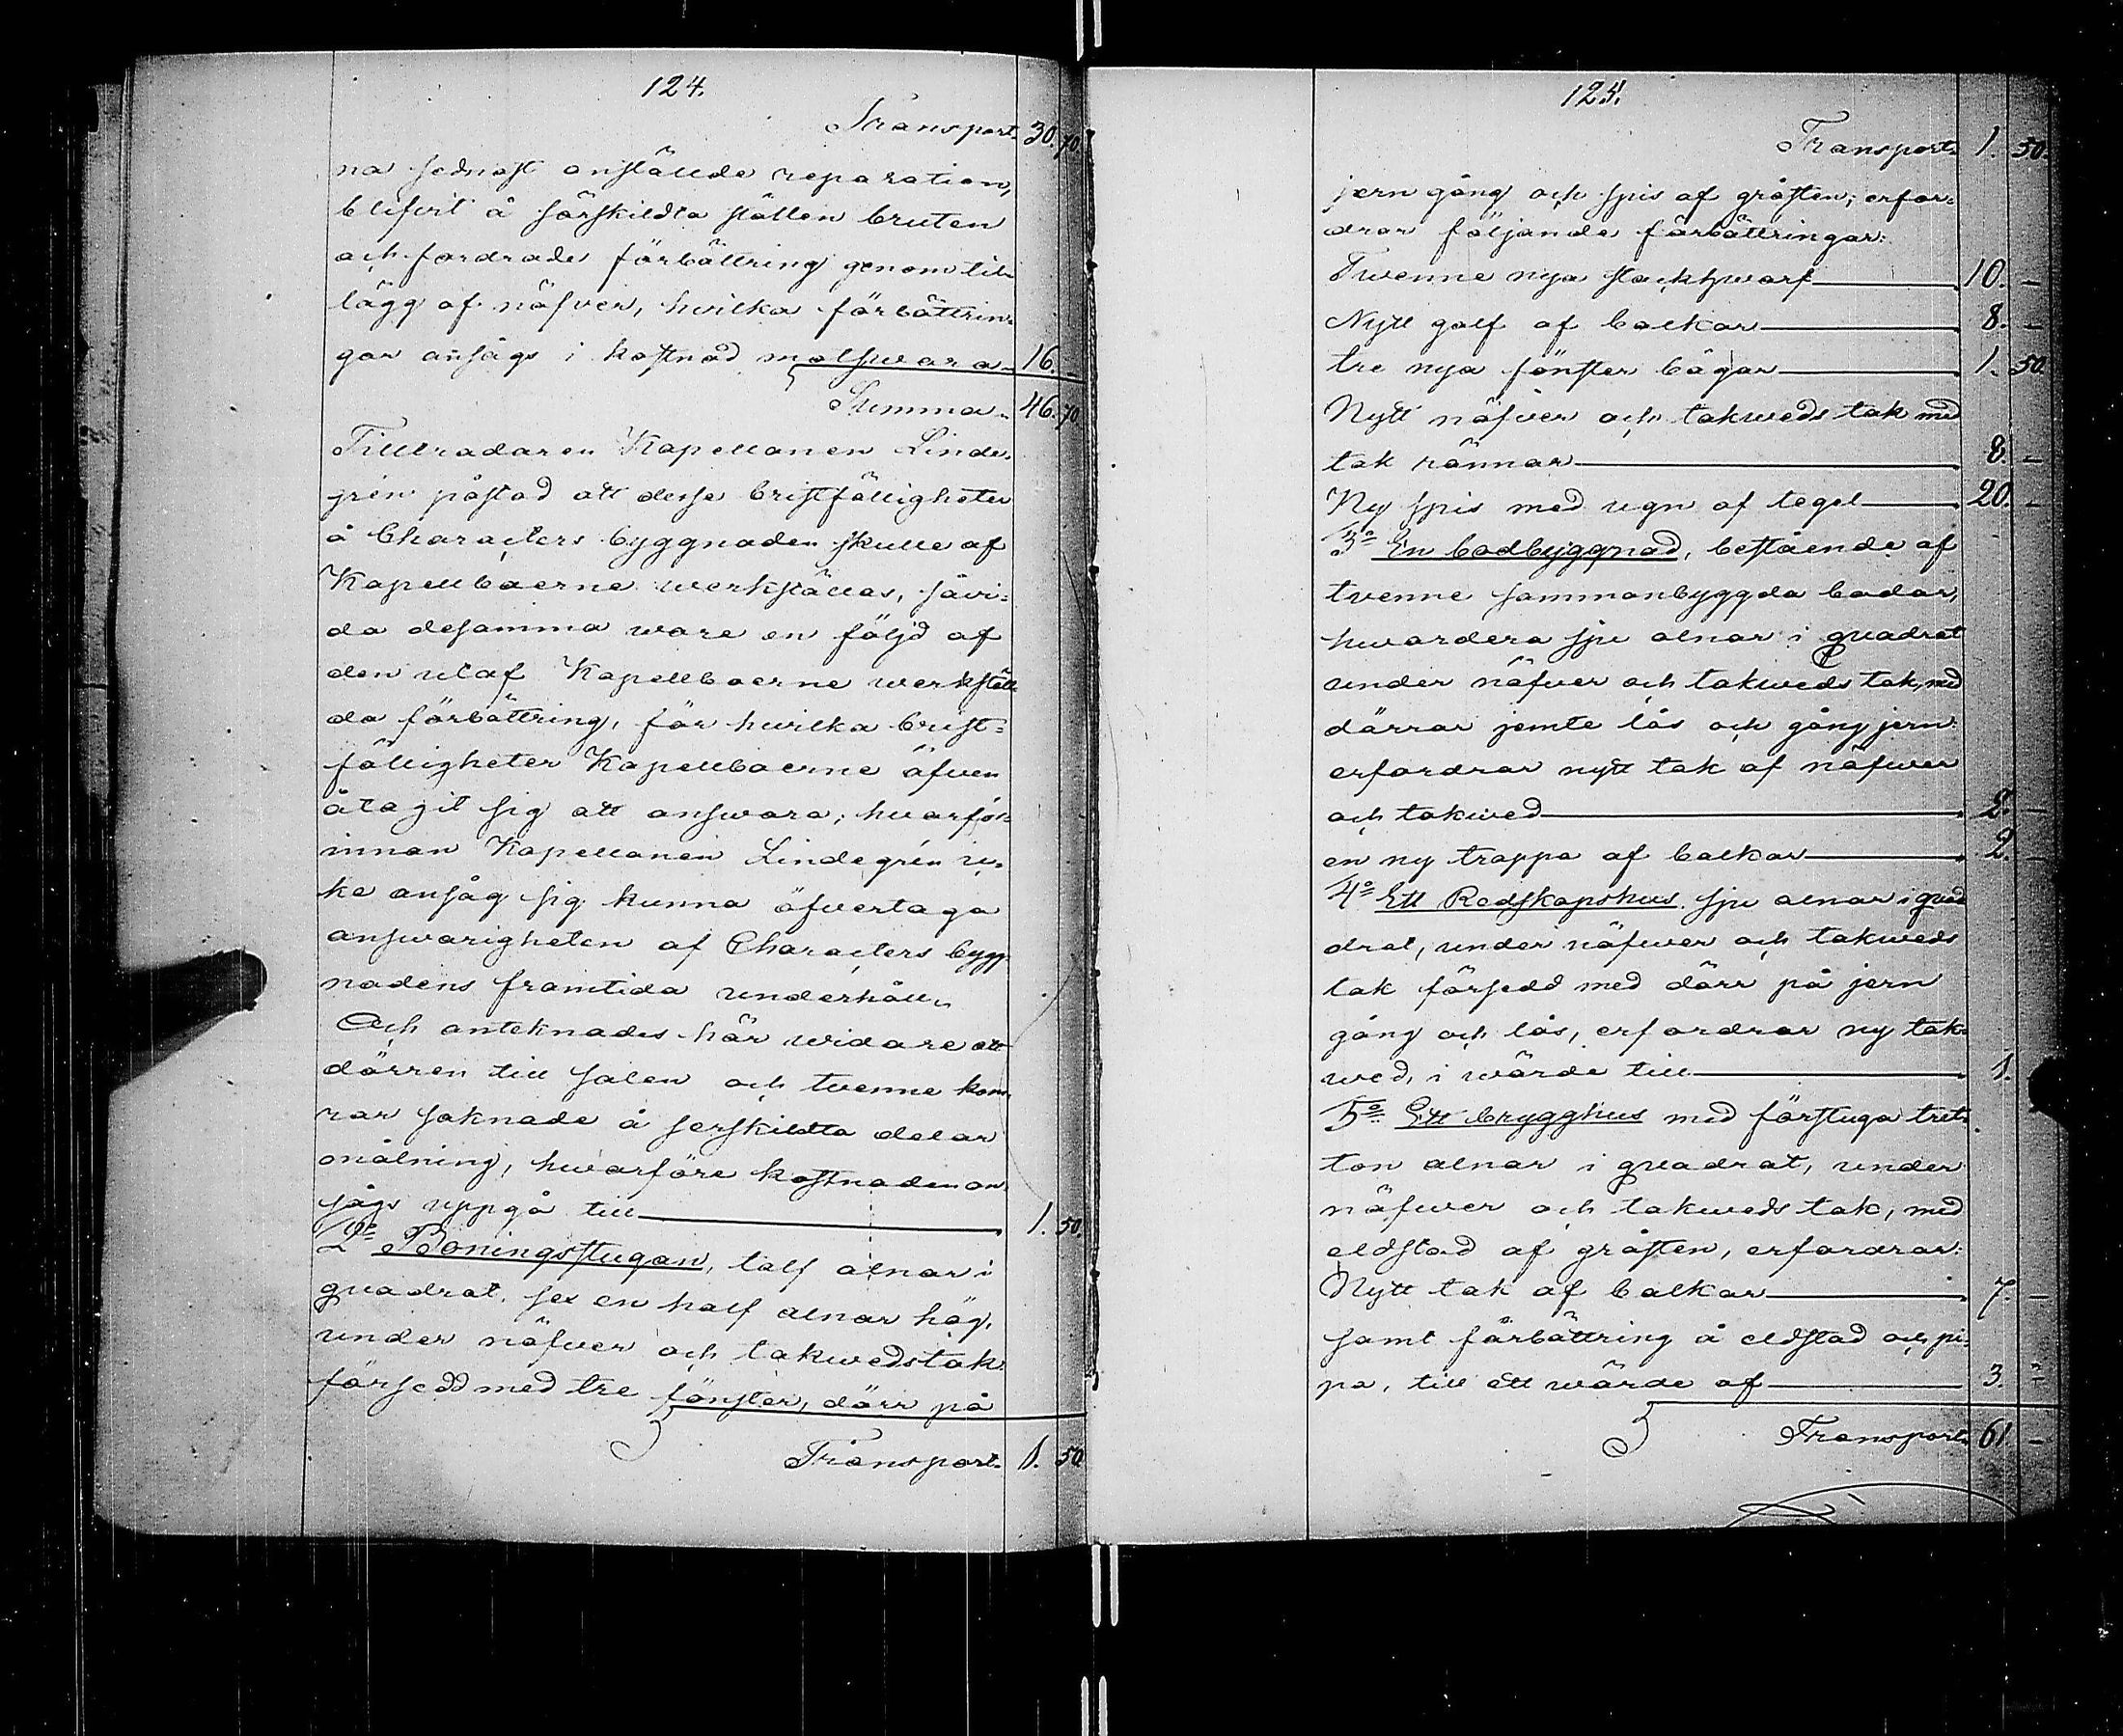 124.
Transport. 30. 70.
na sednast anstälde reparation,
blifvit å särskildta ställen bruten
och fordrade förbättring genom til-
lägg af näfver, hvilka förbättrin-
gar ansågs i kostnad motsvara. 16. -
Summa. 46. 70
Tillträdaren Kapellanen Linde-
grén påstod att dessa bristfälligheter
å Characters byggnaden skulle af
Kapellboerne werkställas, såvi-
da desamma ware en följd af
den utaf Kapellboerne werkstäl-
da förbättring, för hvilka brist-
fälligheter Kapellboerne äfven
åtagit sig att answara; hvarför-
innan Kapellanen Lindegrén ic-
ke ansåg sig kunna öfvertaga
answarigheten af Characters bygg-
nadens framtida underhåll.
Och anteknades här widare att
dörren till salen och tvenne kam-
rar saknade å serskildta delar
målning, hwarföre kostnaden an-
sågs uppgå till 1. 50.
2o Boningsstugan, tolf alnar i
quadrat, sex en half alnar hög,
under näfver och takwedstak
försedd med tre fönster, dörr på
Transport. 1. 50
125.
Transport. 1. 50.
jern gång och spis af gråsten; erfor-
drar följande förbättringar:
Twenne nya stockhwarf 10. -
Nytt golf af balkar 8. -
tre nya fönster bågar 1. 50
Nytt näfver och takweds tak med
tak rännar 8. -
Ny spis med ugn af tegel 20. -
3o En bodbyggnad, bestående af
tvenne sammanbyggda bodar,
hwardera sju alnar i quadrat
under näfver och takweds tak, med
dörrar jemte lås och gång jern:
erfordrar nytt tak af näfwer
och takwed -
en ny trappa af balkar 2. -
4o Ett Redskapshus sju alnar i qua
drat, under näfwer och takweds
tak försedd med dörr på jern
gång och lås, erfordrar ny tak-
wed, i wärde till 1.
5o Ett brygghus med förstuga tret-
ton alnar i quadrat, under
näfwer och takweds tak, med
eldstad af gråsten, erfordrar:
Nytt tak af balkar 7. -
samt förbättring å eldstad och pi-
pa, till ett wärde af 3. -
Transport. 61. -